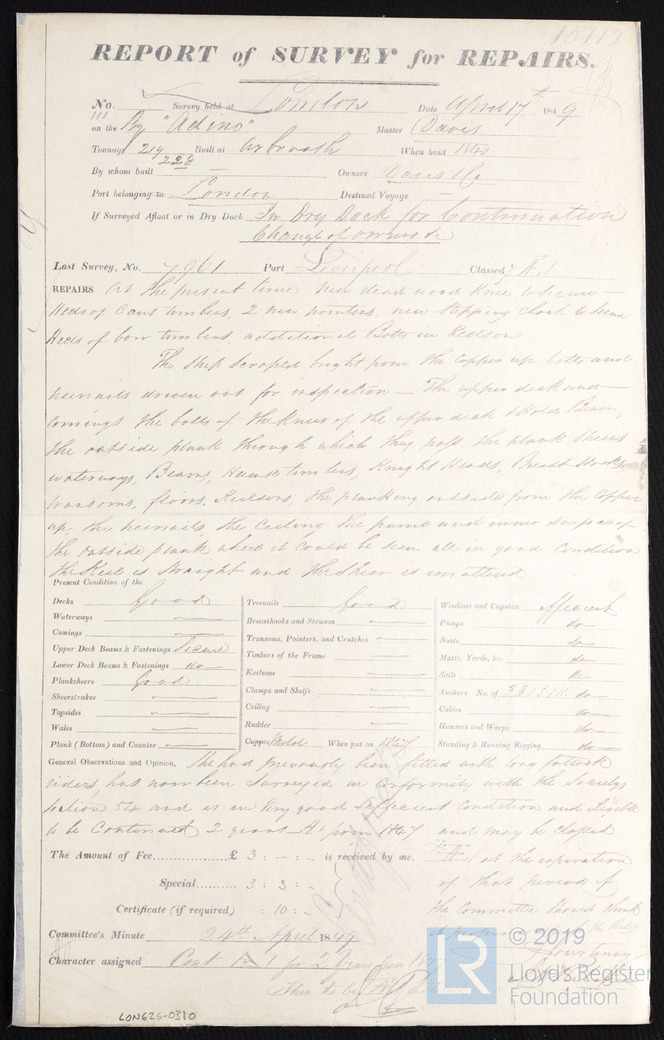 15112
REPORT of SURVEY for REPAIRS.
No. 111 Survey held at London Date April 17th 1849
on the Bg "Adino" Master Davis
Tonnage 219 Built at Arbroath When built 1840
228
By whom built Owners Davis & Co
Port belonging to London Destined Voyage
If Surveyed Afloat or in Dry Dock In Dry Dock for Continuation
Change of owners &c
Last Survey, No. 7961 Port Liverpool Classed 7 A.1
REPAIRS At the present time New dead wood Knee to Secure
Heels of Cant timbers, 2 new pointers, new Stepping Chock to Secure
Heels of bow timbers, additional Bolts in Keelson
The Ship Scraped bright from the Copper up bolts and
treenails driven out for inspection — The upper deck and
Comings the bolts of the Knees of the upper deck & Hold Beams,
the outside plank through which they pass the plank Sheers
waterways, Beams, Hawse timbers, Knight Heads, Breast Hooks
transoms, floors, Keelsons, the planking outside from the Copper
up, the treenails the Ceiling the frame and inner surface of
the outside plank where it could be seen all in good Condition
the Keel is straight and the Sheer is
Present Condition of the
Decks Good
Waterways —
Comings —
Upper Deck Beams & Fastenings Secure
Lower Deck Beams & Fastenings do
Planksheers Good
Sheerstrakes —
Topsides —
Wales —
Plank (Bottom) and Counter —
Treenails Good
Breasthooks and Stemson —
Transoms, Pointers, and Crutches —
Timbers of the Frame —
Keelsons —
Clamps and Shelfs —
Ceiling —
Rudder —
Copper When put on 1847
Windlass and Capstan efficient
Pumps do
Boats do
Masts, Yards, &c. do
Sails do
Anchors No. of do
Cables do
Hawsers and Warps do
Standing & Running Rigging do
General Observations and Opinion, She had previously been fitted with long futtock
riders has now been Surveyed in Conformity with the Societys
Section 54 and is in Very good & efficient Condition and eligible
to be Continued 2 years A1 from 1847 and may be classed
The Amount of Fee......... £ 3 : - : - is received by me,
Special......... 3 : 3 : -
Certificate (if required) : 10 : -
at the expiration
of that period if
the Committee should think
Committee's Minute 24th April 1849
Character assigned Cont A1 for 2 Years from 1847
Then to be
LON626-0310
LR
© 2019
Lloyd's Register
Foundation